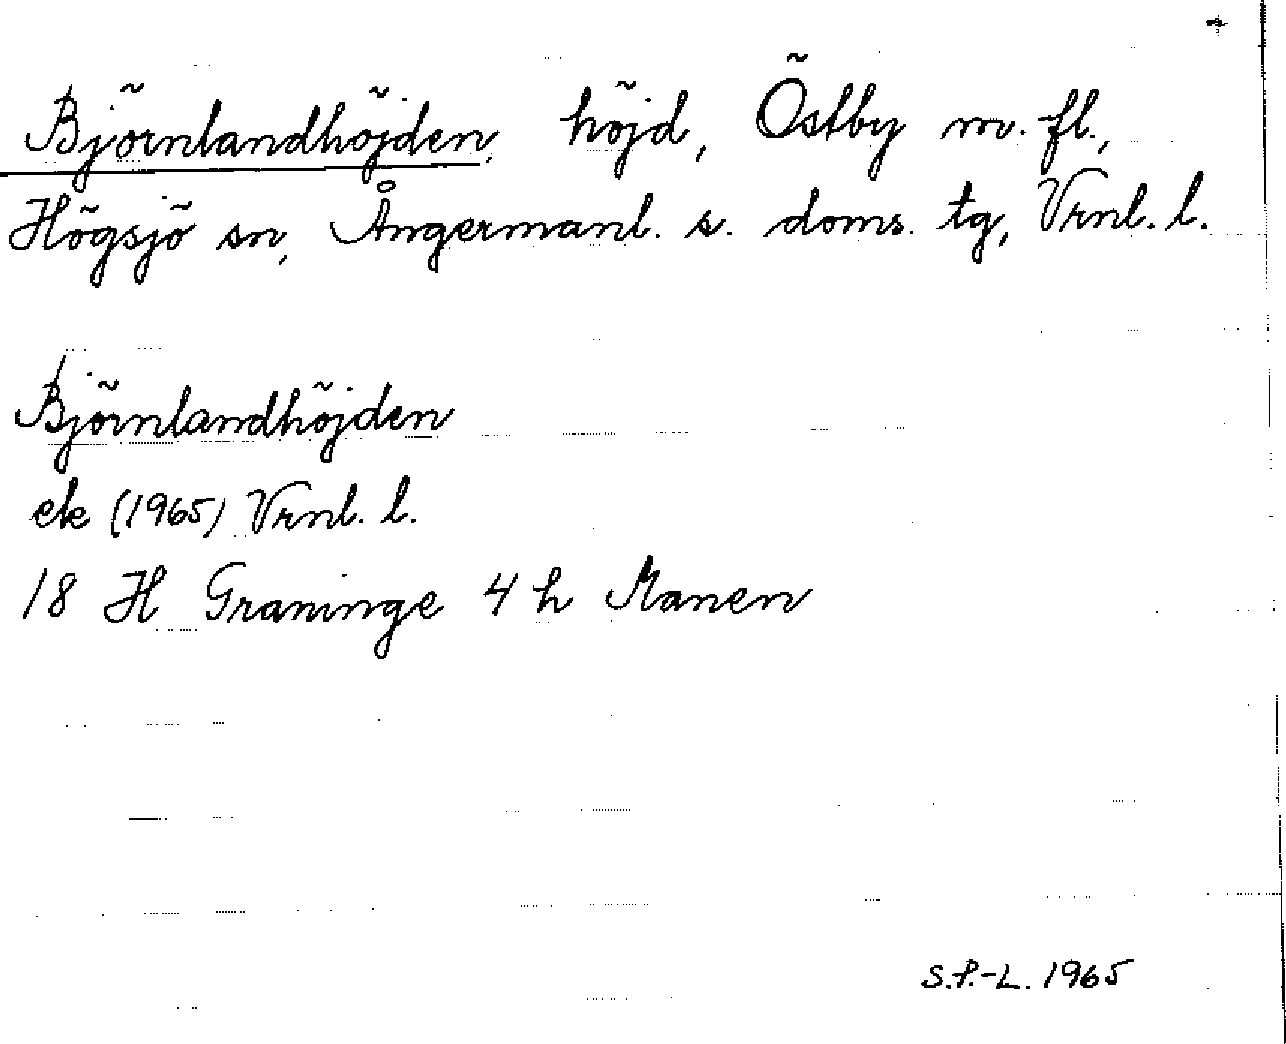 Björnlandhöjden, höjd, Östby m.fl.,
Högsjö sn, Ångermanl. s. doms. tg, Vrnl. l.
Björnlandhöjden
ek (1965) Vrnl. l.
18 H Graninge 4 h Manen
S.P.-L. 1965